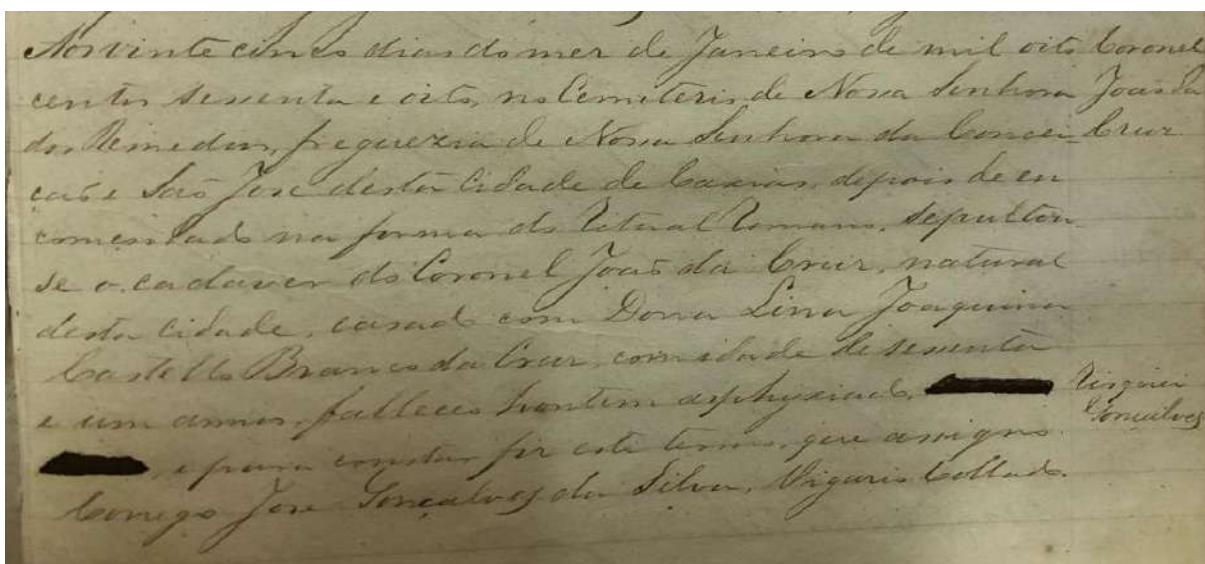 Aos vinte cinco dias do mez de Janeiro de mil oito
centos sessenta e oito, no Cemiterio de Nossa Senhora
dos Remedios, freguezia de Nossa Senhora da Concei-
cão e São José desta Cidade de Caxias, depois de en
comendado na forma do Retual Romano, sepultou-
se o cadaver do Coronel João da Cruz, natural
desta cidade, casado com Dona Lina Joaquina
Castello Branco da Cruz, com idade de sessenta
e um annos, falleceo hontem asphyxiado,
, e para constar fiz este termo, que assigno.
Conego José Gonçalves da Silva, Vigario Collado.
Coronel
João da
Cruz
Gonçalves